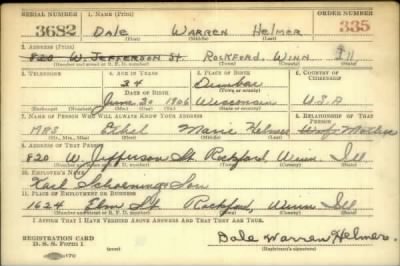 SERIAL NUMBER 1. NAME (Print) ORDER NUMBER
3682 DALE WARREN HELMER 335
(First) (Middle) (Last)
2. ADDRESS (Print)
820 W. JEFFERSON ST. ROCKFORD, WINN ILL
(Number and street or R. F. D. number) (Town) (County) (State)
3. TELEPHONE 4. AGE IN YEARS 5. PLACE OF BIRTH 6. COUNTRY OF CITIZENSHIP
34 Dunbar
DATE OF BIRTH (Town or county)
June 20 1906 Wisconsin U.S.A
(Exchange) (Number) (Mo.) (Day) (Yr.) (State or country)
7. NAME OF PERSON WHO WILL ALWAYS KNOW YOUR ADDRESS 8. RELATIONSHIP OF THAT PERSON
MRS Ethel Marie Helmer Wife Mother
(Mr., Mrs., Miss) (First) (Middle) (Last)
9. ADDRESS OF THAT PERSON
820 W. Jefferson St. Rockford, Winn. Ill.
(Number and street or R. F. D. number) (Town) (County) (State)
10. EMPLOYER'S NAME
Karl Schoening Son
11. PLACE OF EMPLOYMENT OR BUSINESS
1624 Elm St Rockford, Winn Ill
(Number and street or R. F. D. number) (Town) (County) (State)
I AFFIRM THAT I HAVE VERIFIED ABOVE ANSWERS AND THAT THEY ARE TRUE.
REGISTRATION CARD
D. S. S. Form 1
Dale Warren Helmer
(Registrant's signature)